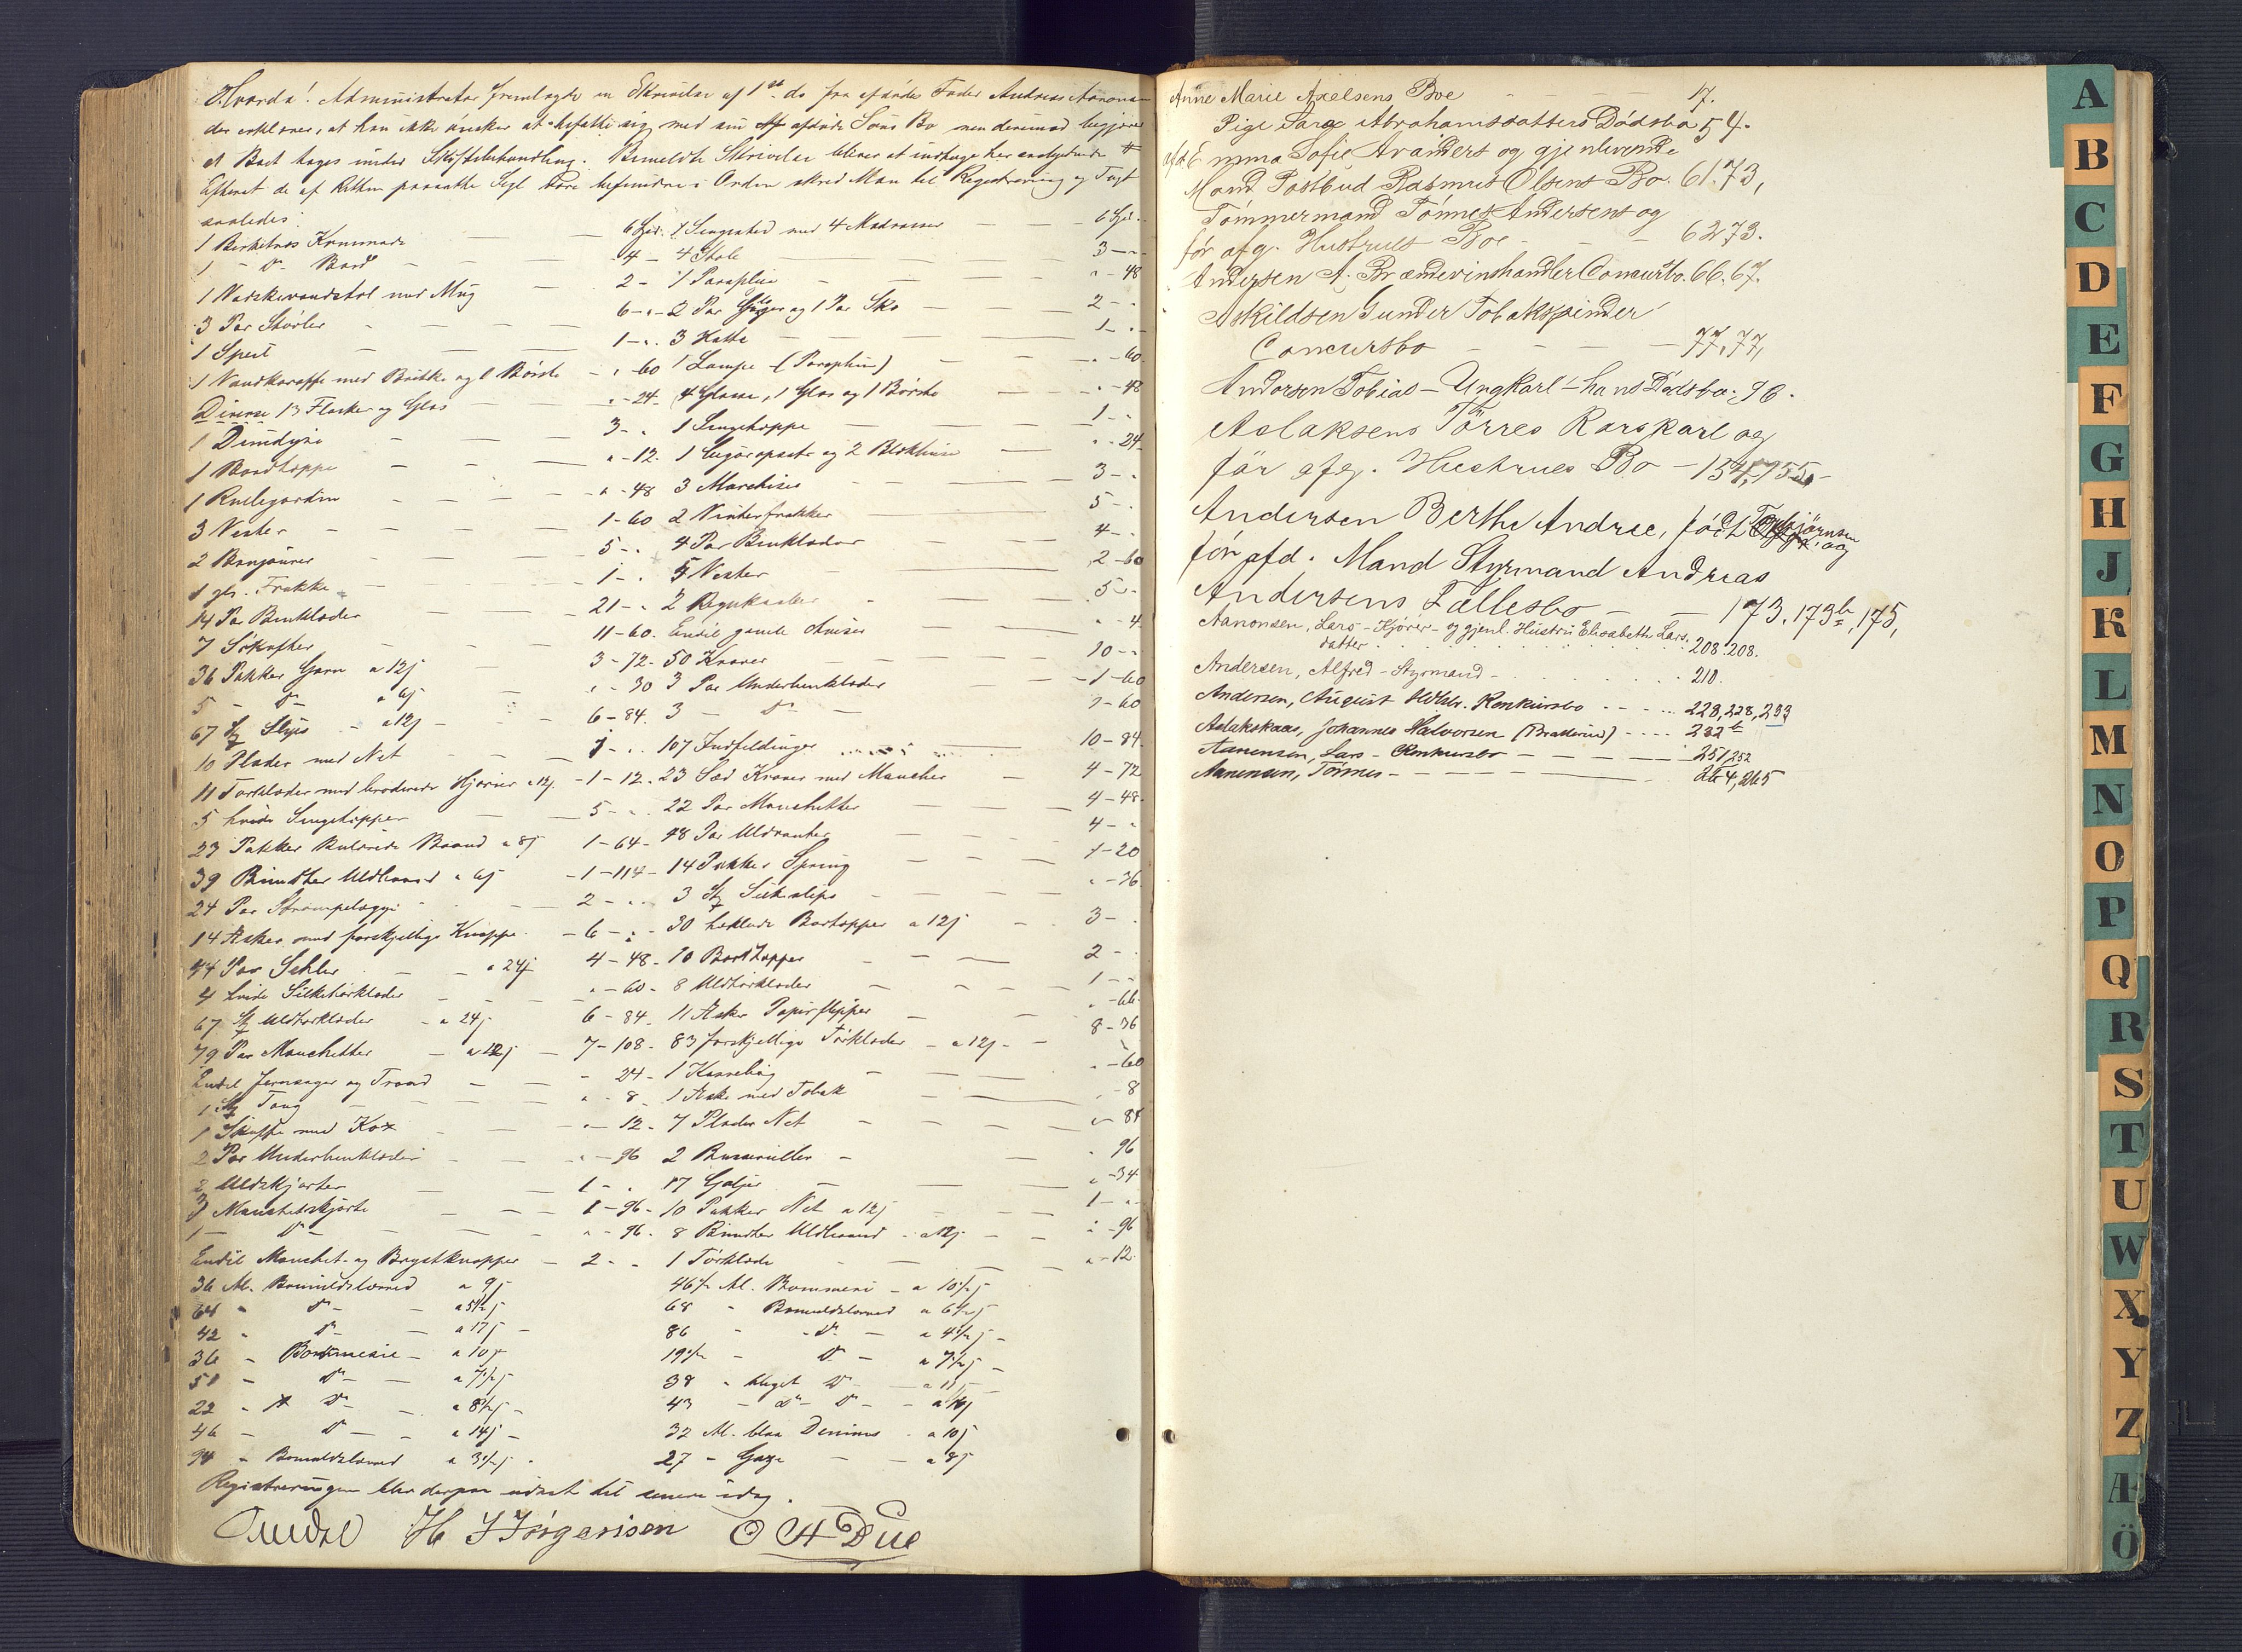 Hvorda! Administrator fremlagde en Skrivelse af 1ste ds fra afdødes Fader Andreas Aanons
der erklærer, at han ikke ønsker at befatte sig med sin afdøde Søns Bo men derimod begjærer
at Boet tages under Skiftebehandling. Bemeldte Skrivelse bliver at indtage her saalydende #
Efteret de af Retten paasatte Segl vare befundne i Orden skred Man til Registrering og Taxt
saaledes:
1 Birketræs Kommode — 6 Spd. 1 Sengested med 4 Madrasser — 6 Spd.
1 - do - Bord — 4 - 4 Stole — 3 - -
1 Vaskevandsstol med Mug 2 - 1 Paraplui - 48
3 Par Støvler 6 - „ - 2 Par Sko og 1 Par Sko 2 - -
1 Speil 1 - „ . 3 Hatte 1 - -
1 Vandkaraffe med Bakke og 1 Børste - 60 1 Lampe (Paraphin) - 60
Diverse 13 Flasker og Glas - 24 - 4 Glasse, 1 Glas og 1 Børste - 48
1 Dundyne 3 - „ 1 Sengetæppe 1 - -
1 Bordtæppe - 12. 1 Cigaropsats og 2 Blækhuse - 24
1 Rullegardin - 48 3 Marchiser 3 - -
3 Vester 1 - 60 2 Vinterfrakker 5 - -
2 Bonjourer 5 - . 4 Par Benklæder 4 - -
1 gl. Frakke 1 - . 5 Vester 2 - 60
14 Par Benklæder 21 - . 2 Regnkaaber 5 - -
7 Løkofter 11 - 60. Endel gamle Aviser - 4
36 Pakker Garn a 12ſ 3 - 72 - 50 Kraver 10 - -
5 - do - a 6ſ - 30 3 Par Underbenklæder 1 - 60
67 St Slips a 12ſ 6 - 84. 3 - do - 1 - 60
10 Plader med Net 107 Indfeldinger 10 - 84
11 Tørklæder med broderede Hjørner a 12ſ. - 1 - 12. 23 Sæt Kraver med Mancher 4 - 72
5 hvide Sengetæpper 5 - . 22 Par Manchetter 4 - 48
23 Pakker kulørede Baand a 8ſ 1 - 64 - 48 Par Uldvanter 4 - -
39 Bundter Uldbaand a 6ſ - 1 - 114 - 14 Pakker Spring 1 - 20
24 Par Strømpelægge 2 - . 3 St Silkeslips - 36
14 Æsker med forskjellige Knappe - 6 - . - 30 heklede Bortæpper a 12ſ 3 - -
44 Par Sehler - a 24ſ 4 - 48 - 10 Bordtæpper 2 - -
4 hvide Silketørklæder - 60 - 8 Uldtørklæder 1 - -
67 St Uldtørklæder - a 24ſ 6 - 84 - 11 Æsker Papirflipper - 66
79 Par Manchetter - a 12ſ - 7 - 108 - 83 forskjellige Tørklæder - a 12ſ - 8 - 36
Endel Jernvager og Traad - 24 - 1 - 60
1 St Toug - 8 1 Æske med Tobak - 8
1 Skuffe med Kox - 12 - 7 Plader Net - 84
2 Par Underbenklæder - 96 2 Busseruller - 96
2 Uldskjorter 1 - . 17 Galger - 34
3 Manchetskjorte 1 - 96 - 10 Pakker Net a 12ſ 1 - -
1 — do — - 96 - 8 Bundter Uldbaand - a 12ſ - 96
Endel Manchet- og Brystknapper - 2 - - 1 Tørklæde - 12
36 Al. Bomuldslærred a 9ſ 46½ Al. Bommesi - a 10½ſ
64 " do - a 5½ſ 68 - Bomuldslærred a 6½ſ
42 - do - a 17ſ - 86 - do - a 4½ſ -
36 - Bommesie - a 10ſ 19½ - do - a 7½ſ -
51 - do - a 7½ſ 38 - bleget do - a 11ſ -
22 - do - a 8½ſ - 43 - do - do - a 16ſ
46 - do - a 14ſ - 32 Al. blaa Denims - a 10ſ
94 - Bomuldslærred a 3½ſ - 27 - Gaze - a 8ſ
Registreringen blev derpaa udsat til senere idag.
H J Jørgensen O H Due
Anne Marie Axelsens Boe - - - - 17.
Pige Sara Abrahamsdatters Dødsbo 54.
afd. Emma Sofie Aranders og gjenlevende
Mand Postbud Rasmus Olsens Bo. 61.73,
Tømmermand Tønnes Andersens og
før afg. Hustrues Boe - - - 62 73.
Andersen A. Brændevinshandler Concursbo. 66.67.
Askildsen Gunder Tobakspinder
Concursbo - - - 77.77,
Andersen Tobias - Ungkarl - hans Dødsbo: 96.
Aslaksens Tørres Rorskarl og
før afg. Hustrues Bo - 154,155 -
Andersen Berthe Andree, født Torbjørnsen og
før afd. Mand Styrmand Andreas
Andersens Fællesbo - - 173. 173b, 175,
Aanonsen, Lars - Kjører - og gjenl. Hustru Elisabeth Lars-
datter . . . . . . . . . . 208. 208.
Andersen, Alfred - Styrmand - . . . . . 218.
Andersen, August Udhlr. Konkursbo - - - - - 228, 228, 233
Aslakskaas, Johannes Halvorsen (Braadland) - - - - 232b
Aanensen, Lars - Konkursbo - - - - - 251, 252
Aanensen, Tønnes - - - - - - - 264, 265
A
B
C
D
E
F
G
H
J
K
L
M
N
O
P
Q
R
S
T
U
W
X
Y
Z
Æ
Ö